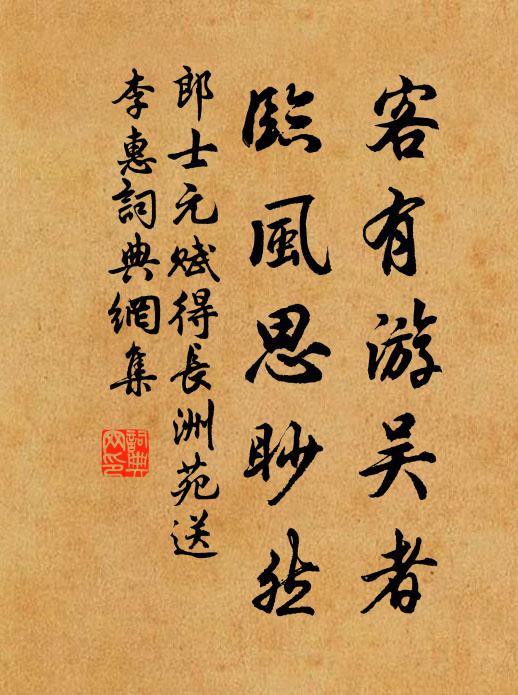 客有游吴者
臨風思眇然
郎士元赋得長洲苑送
李惠詞典網集
詞典网印